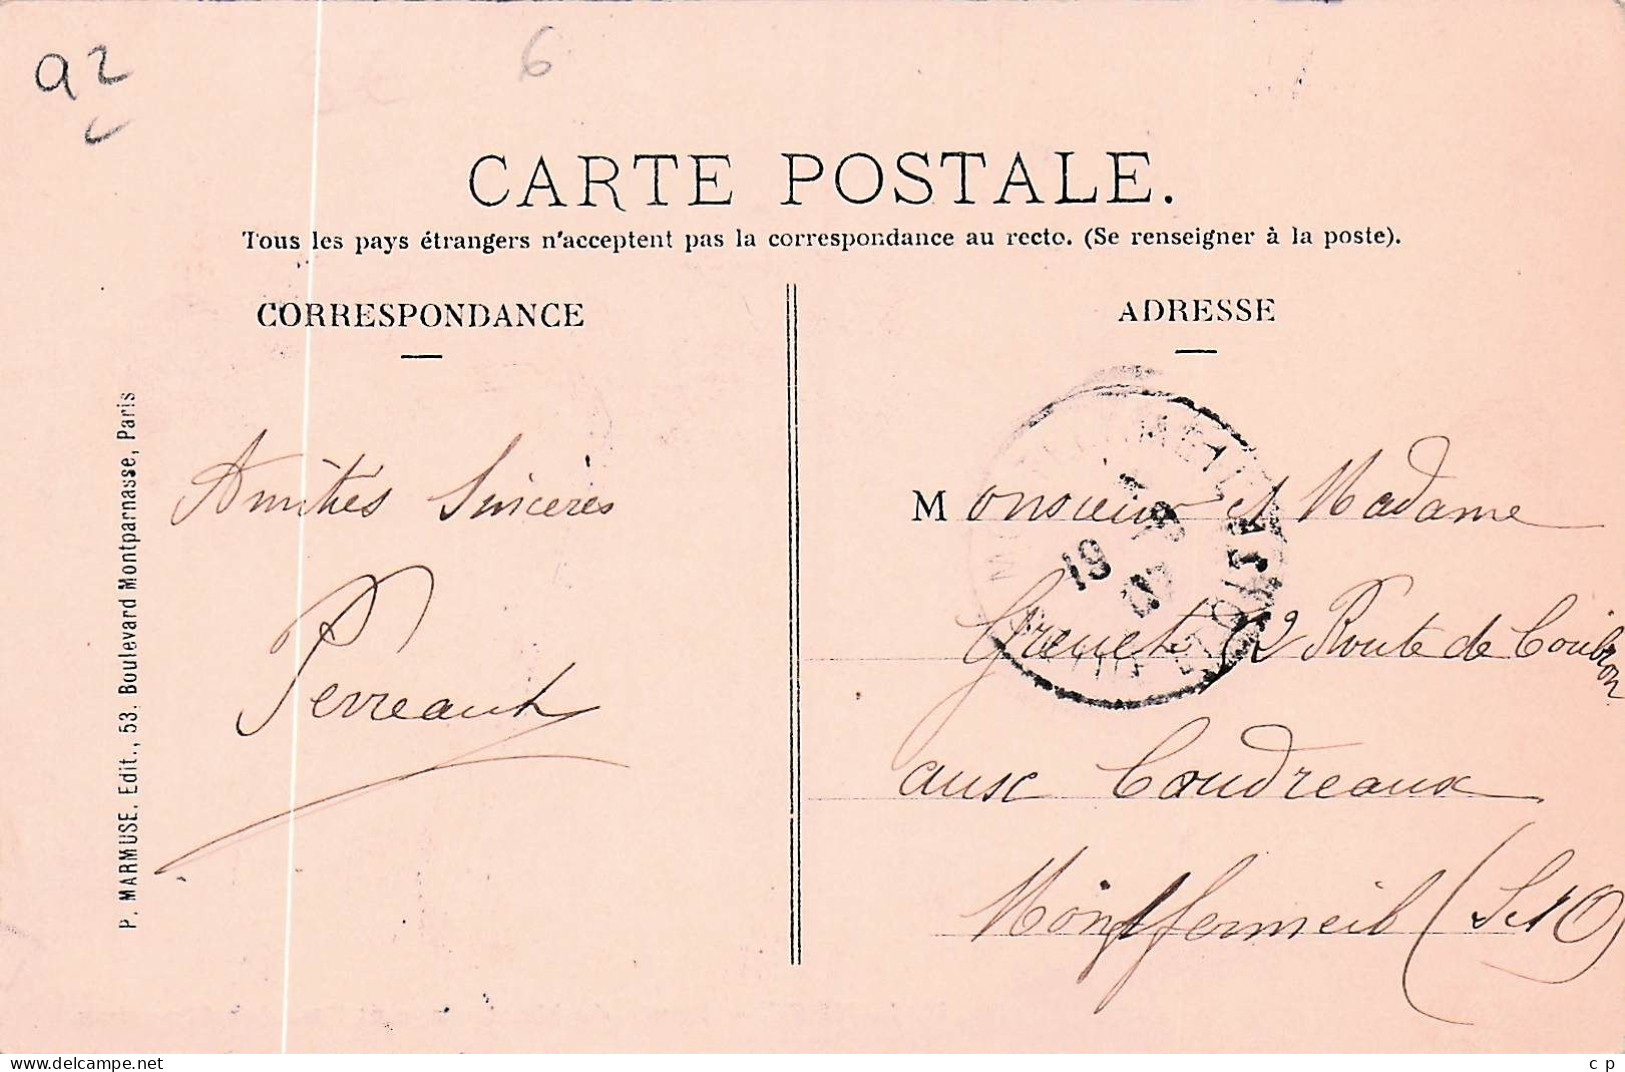 92
6
CARTE POSTALE.
Tous les pays étrangers n'acceptent pas la correspondance au recto. (Se renseigner à la poste).
CORRESPONDANCE
Amitiés Sincères
Perreault
P. MARMUSE. Edit., 53. Boulevard Montparnasse, Paris
ADRESSE
Monsieur et Madame
Grenet 12 Route de Coubron
aux Coudreaux
Montfermeil (S et O)
19
www.delcampe.net
c p